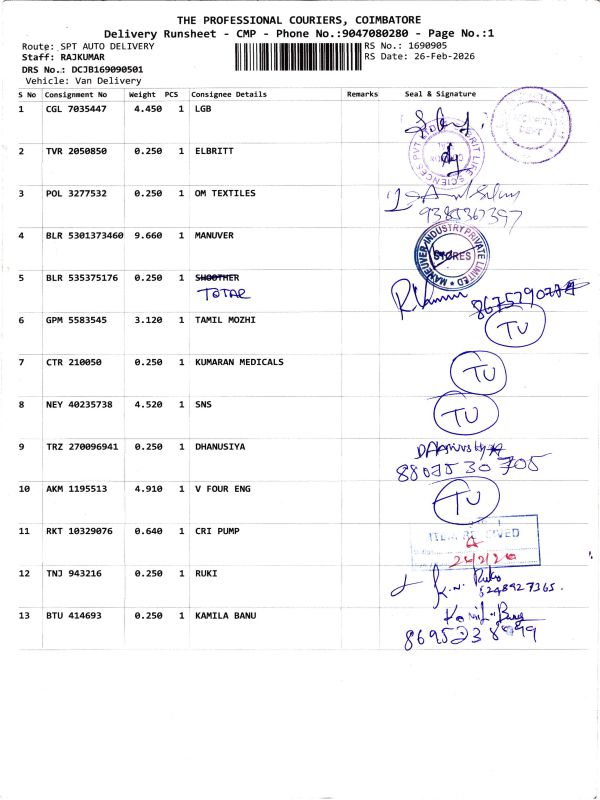 THE PROFESSIONAL COURIERS, COIMBATORE
Delivery Runsheet - CMP - Phone No.:9047080280 - Page No.:1
Route: SPT AUTO DELIVERY RS No.: 1690905
Staff: RAJKUMAR RS Date: 26-Feb-2026
DRS No.: DCJB169090501
Vehicle: Van Delivery
S No Consignment No Weight PCS Consignee Details Remarks Seal & Signature
1 CGL 7035447 4.450 1 LGB
2 TVR 2050850 0.250 1 ELBRITT
3 POL 3277532 0.250 1 OM TEXTILES
9385367397
4 BLR 5301373460 9.660 1 MANUVER
MANEUVER INDUSTRY PRIVATE LIMITED
STORES
5 BLR 535375176 0.250 1 SHOOTHER
TOTAL
6 GPM 5583545 3.120 1 TAMIL MOZHI TU
7 CTR 210050 0.250 1 KUMARAN MEDICALS TU
8 NEY 40235738 4.520 1 SNS TU
9 TRZ 270096941 0.250 1 DHANUSIYA
8807530705
10 AKM 1195513 4.910 1 V FOUR ENG TU
11 RKT 10329076 0.640 1 CRI PUMP
26/2/26
12 TNJ 943216 0.250 1 RUKI
K.N. Ruko
13 BTU 414693 0.250 1 KAMILA BANU